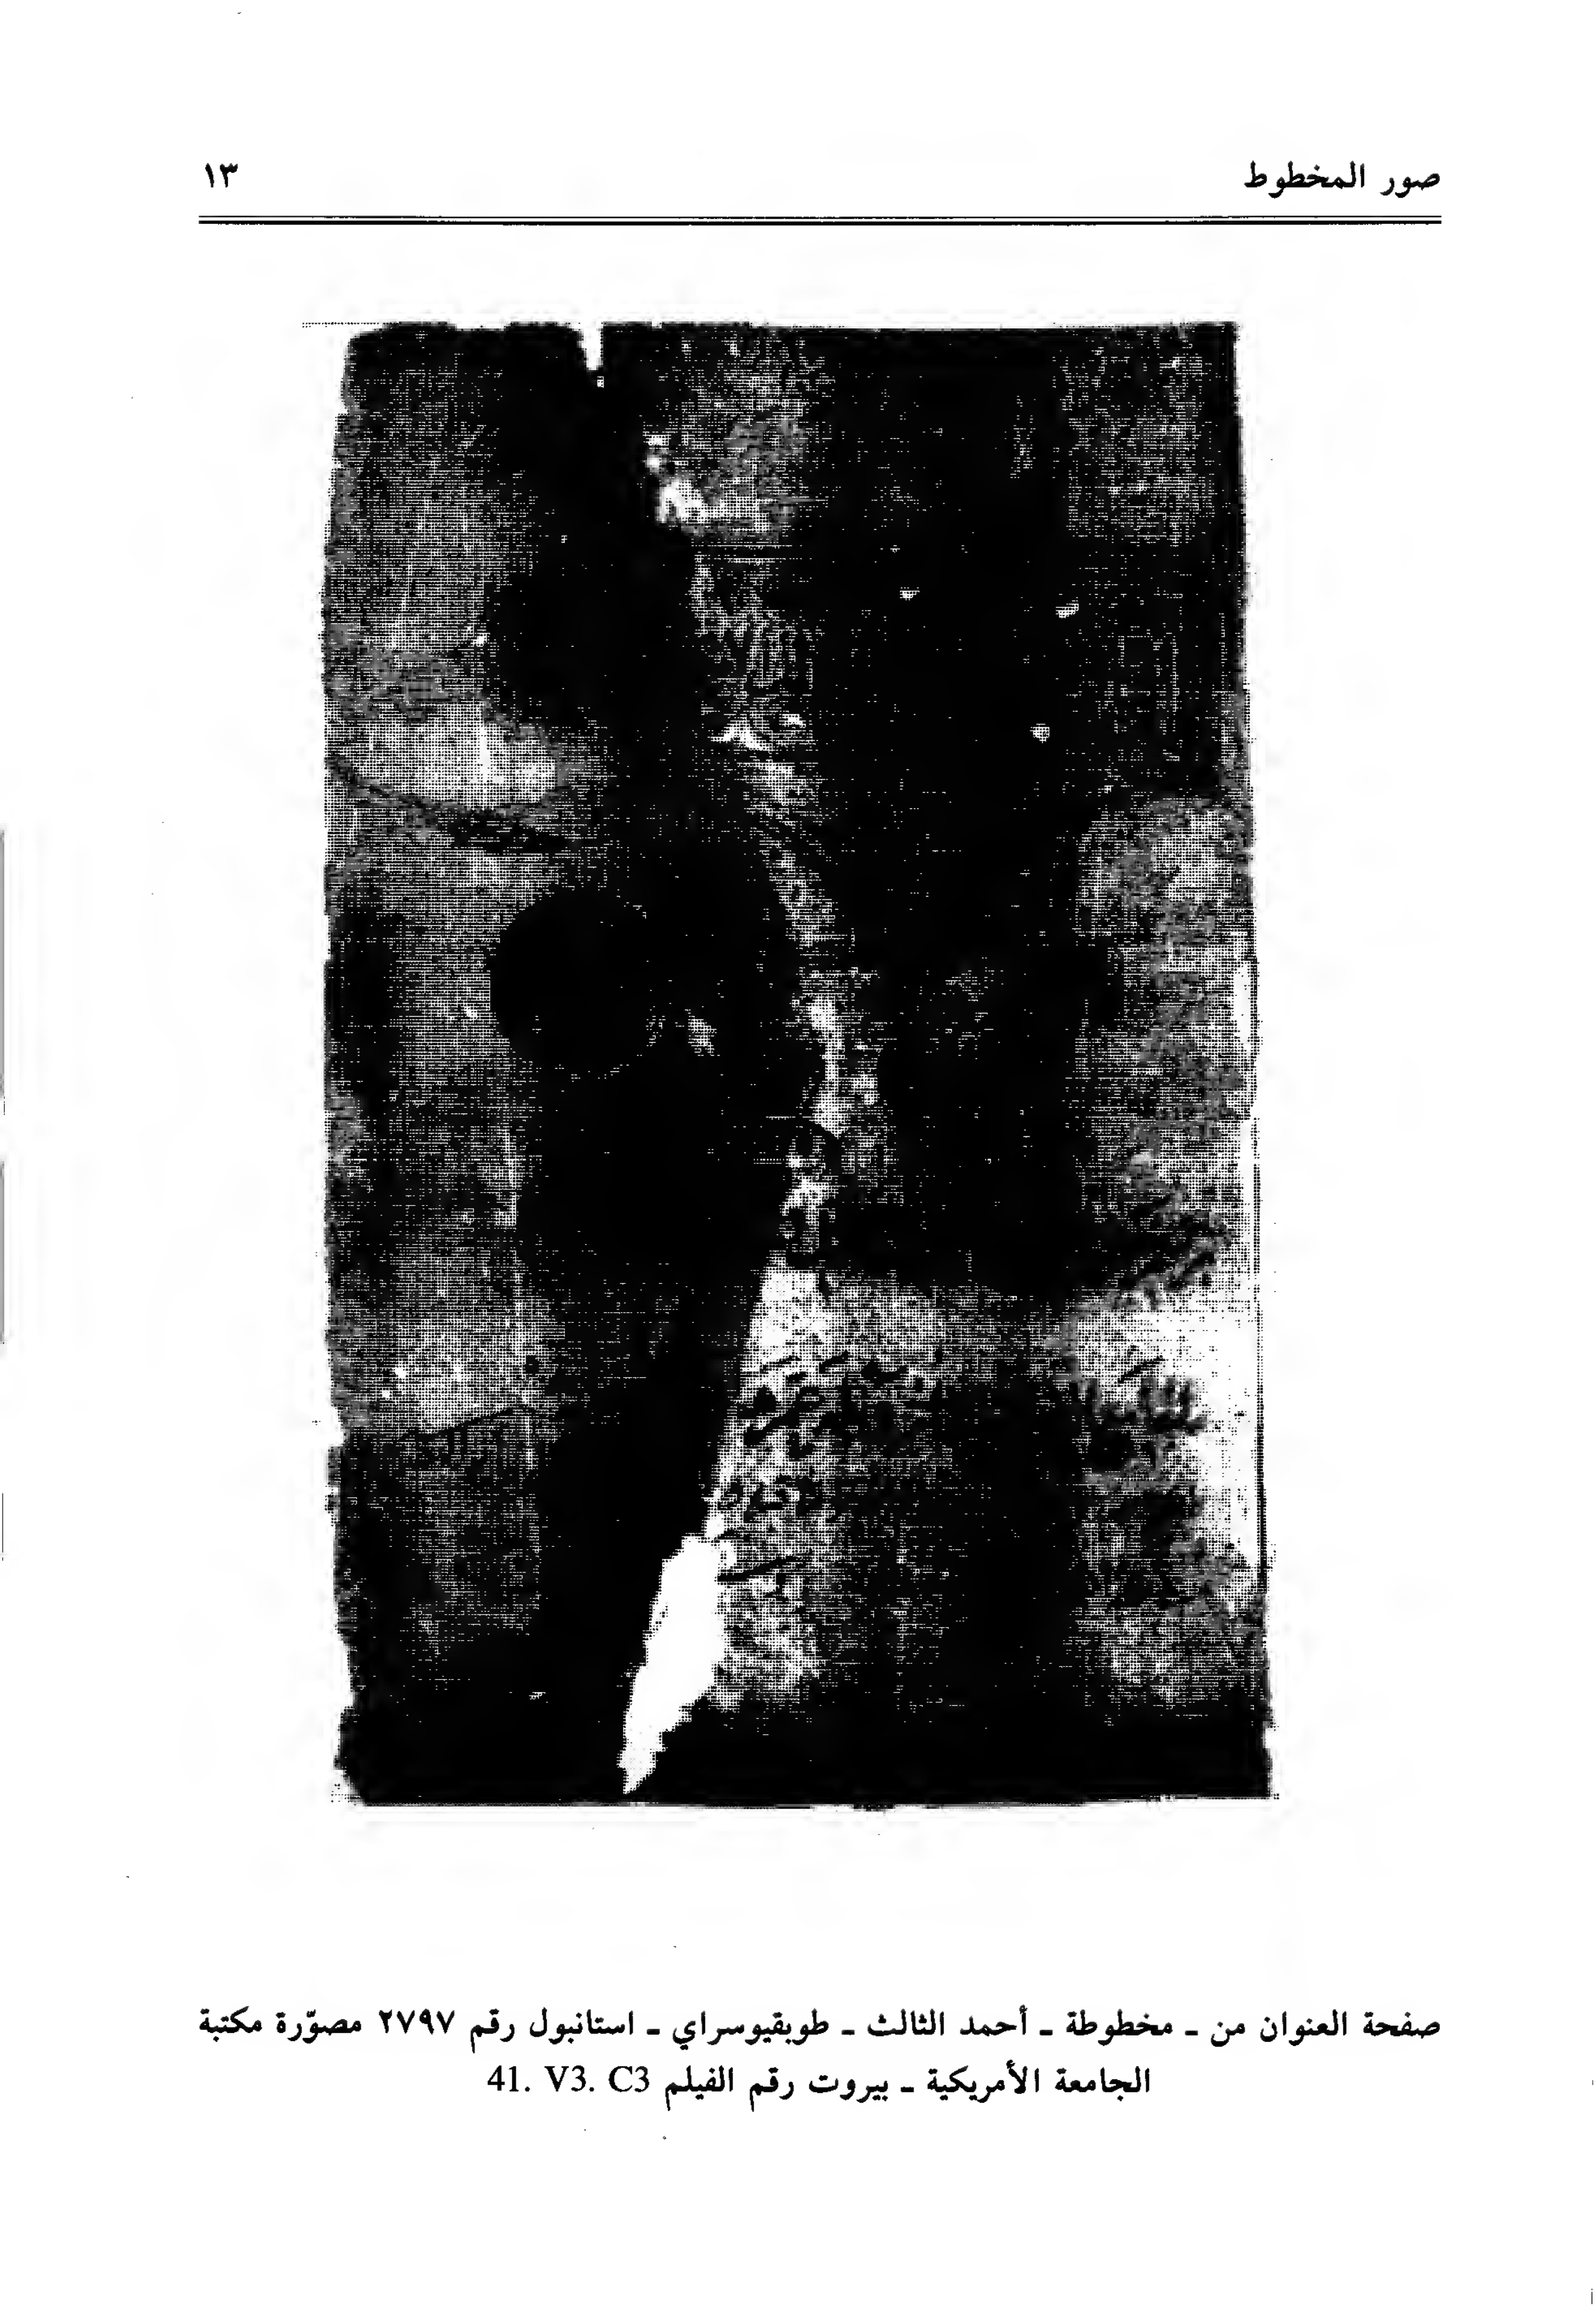 صور المخطوط ١٣
صفحة العنوان من ـ مخطوطة ـ أحمد الثالث ـ طوبقيوسراي ـ استانبول رقم ٢٧٩٧ مصوّرة مكتبة
الجامعة الأمريكية ـ بيروت رقم الفيلم 41. V3. C3